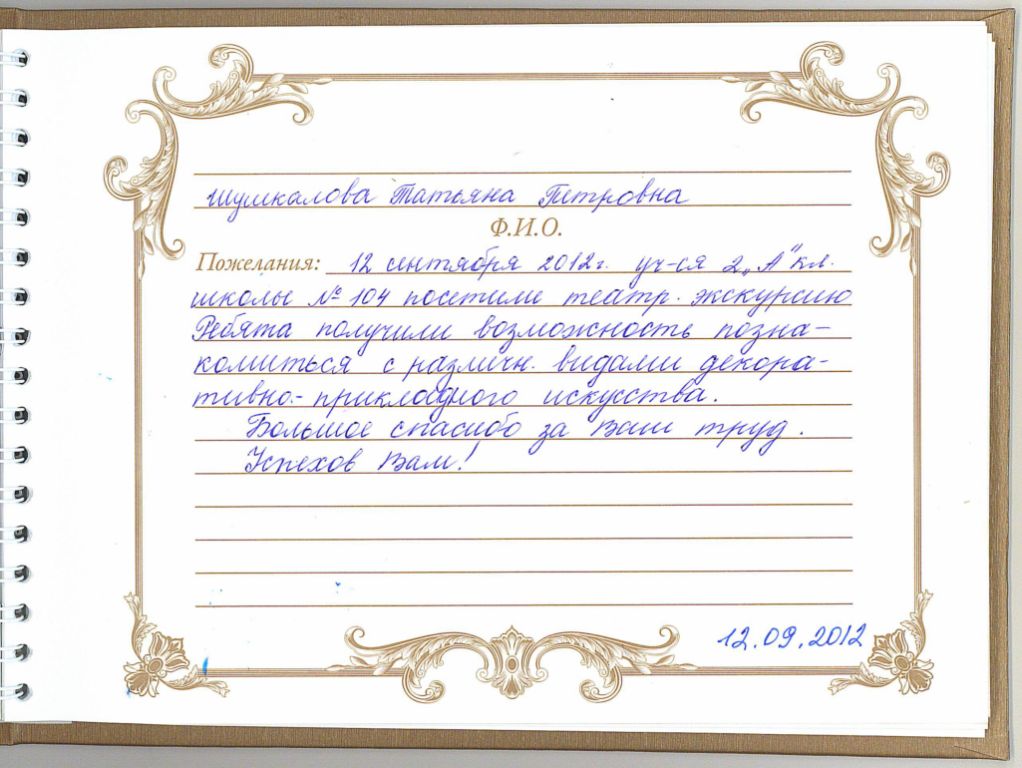 Шумкалова Татьяна Петровна
Ф.И.О.
Пожелания: 12 сентября 2012г. уч-ся 2„А" кл.
школы № 104 посетили театр. экскурсию
Ребята получили возможность позна-
комиться с различн. видами декора-
тивно-прикладного искусства.
Большое спасибо за Ваш труд.
Успехов Вам!
12.09.2012